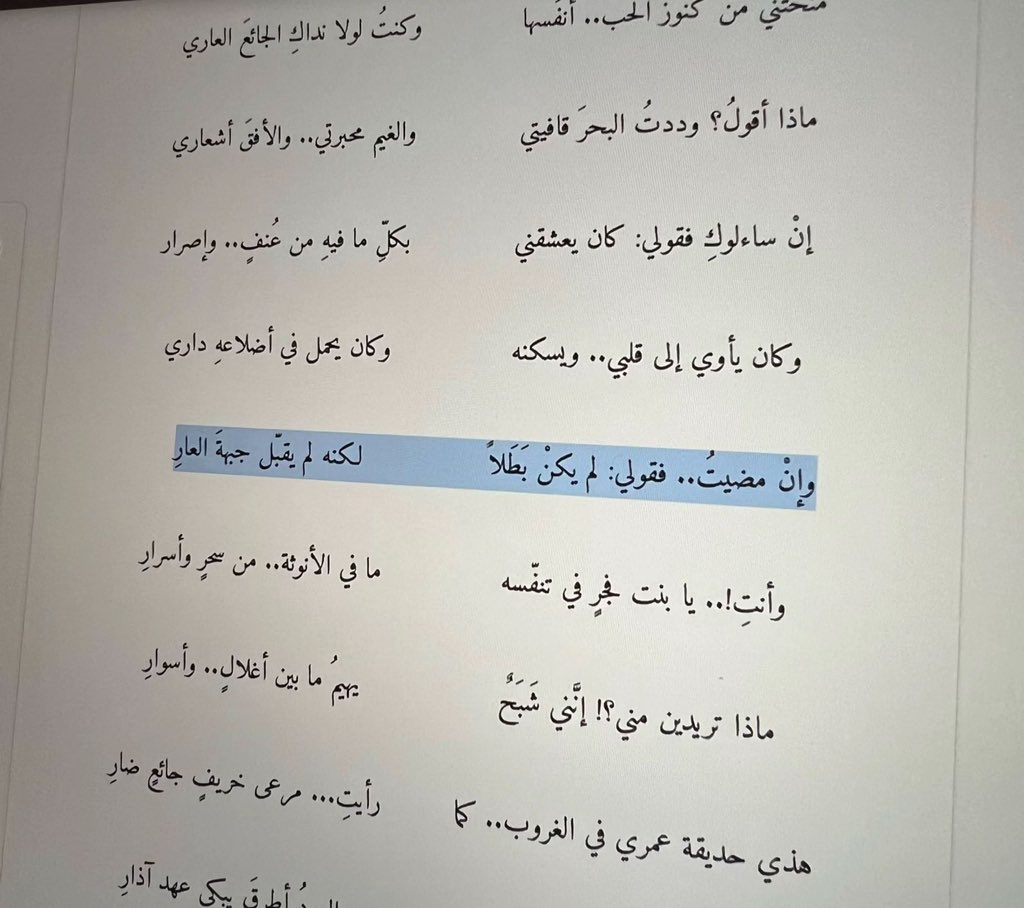 منحتني من كنوز الحب.. أنفَسها وكنتُ لولا نداكِ الجائعَ العاري
ماذا أقولُ؟ وددتُ البحرَ قافيتي والغيم محبرتي.. والأفقَ أشعاري
إنْ ساءلوكِ فقولي: كان يعشقني بكلِّ ما فيهِ من عُنفٍ.. وإصرار
وكان يأوي إلى قلبي.. ويسكنه وكان يحمل في أضلاعهِ داري
وإنْ مضيتُ.. فقولي: لم يكنْ بَطَلاً لكنه لم يقبّل جبهةَ العارِ
وأنتِ!.. يا بنت فجرٍ في تنفّسه ما في الأنوثة.. من سحرٍ وأسرارِ
ماذا تريدين مني؟! إنَّني شَبَحٌ يهيمُ ما بين أغلالٍ.. وأسوارِ
هذي حديقة عمري في الغروب.. كما رأيتِ... مرعى خريفٍ جائعٍ ضارِ
أطرقَ يبكي عهد آذارِ